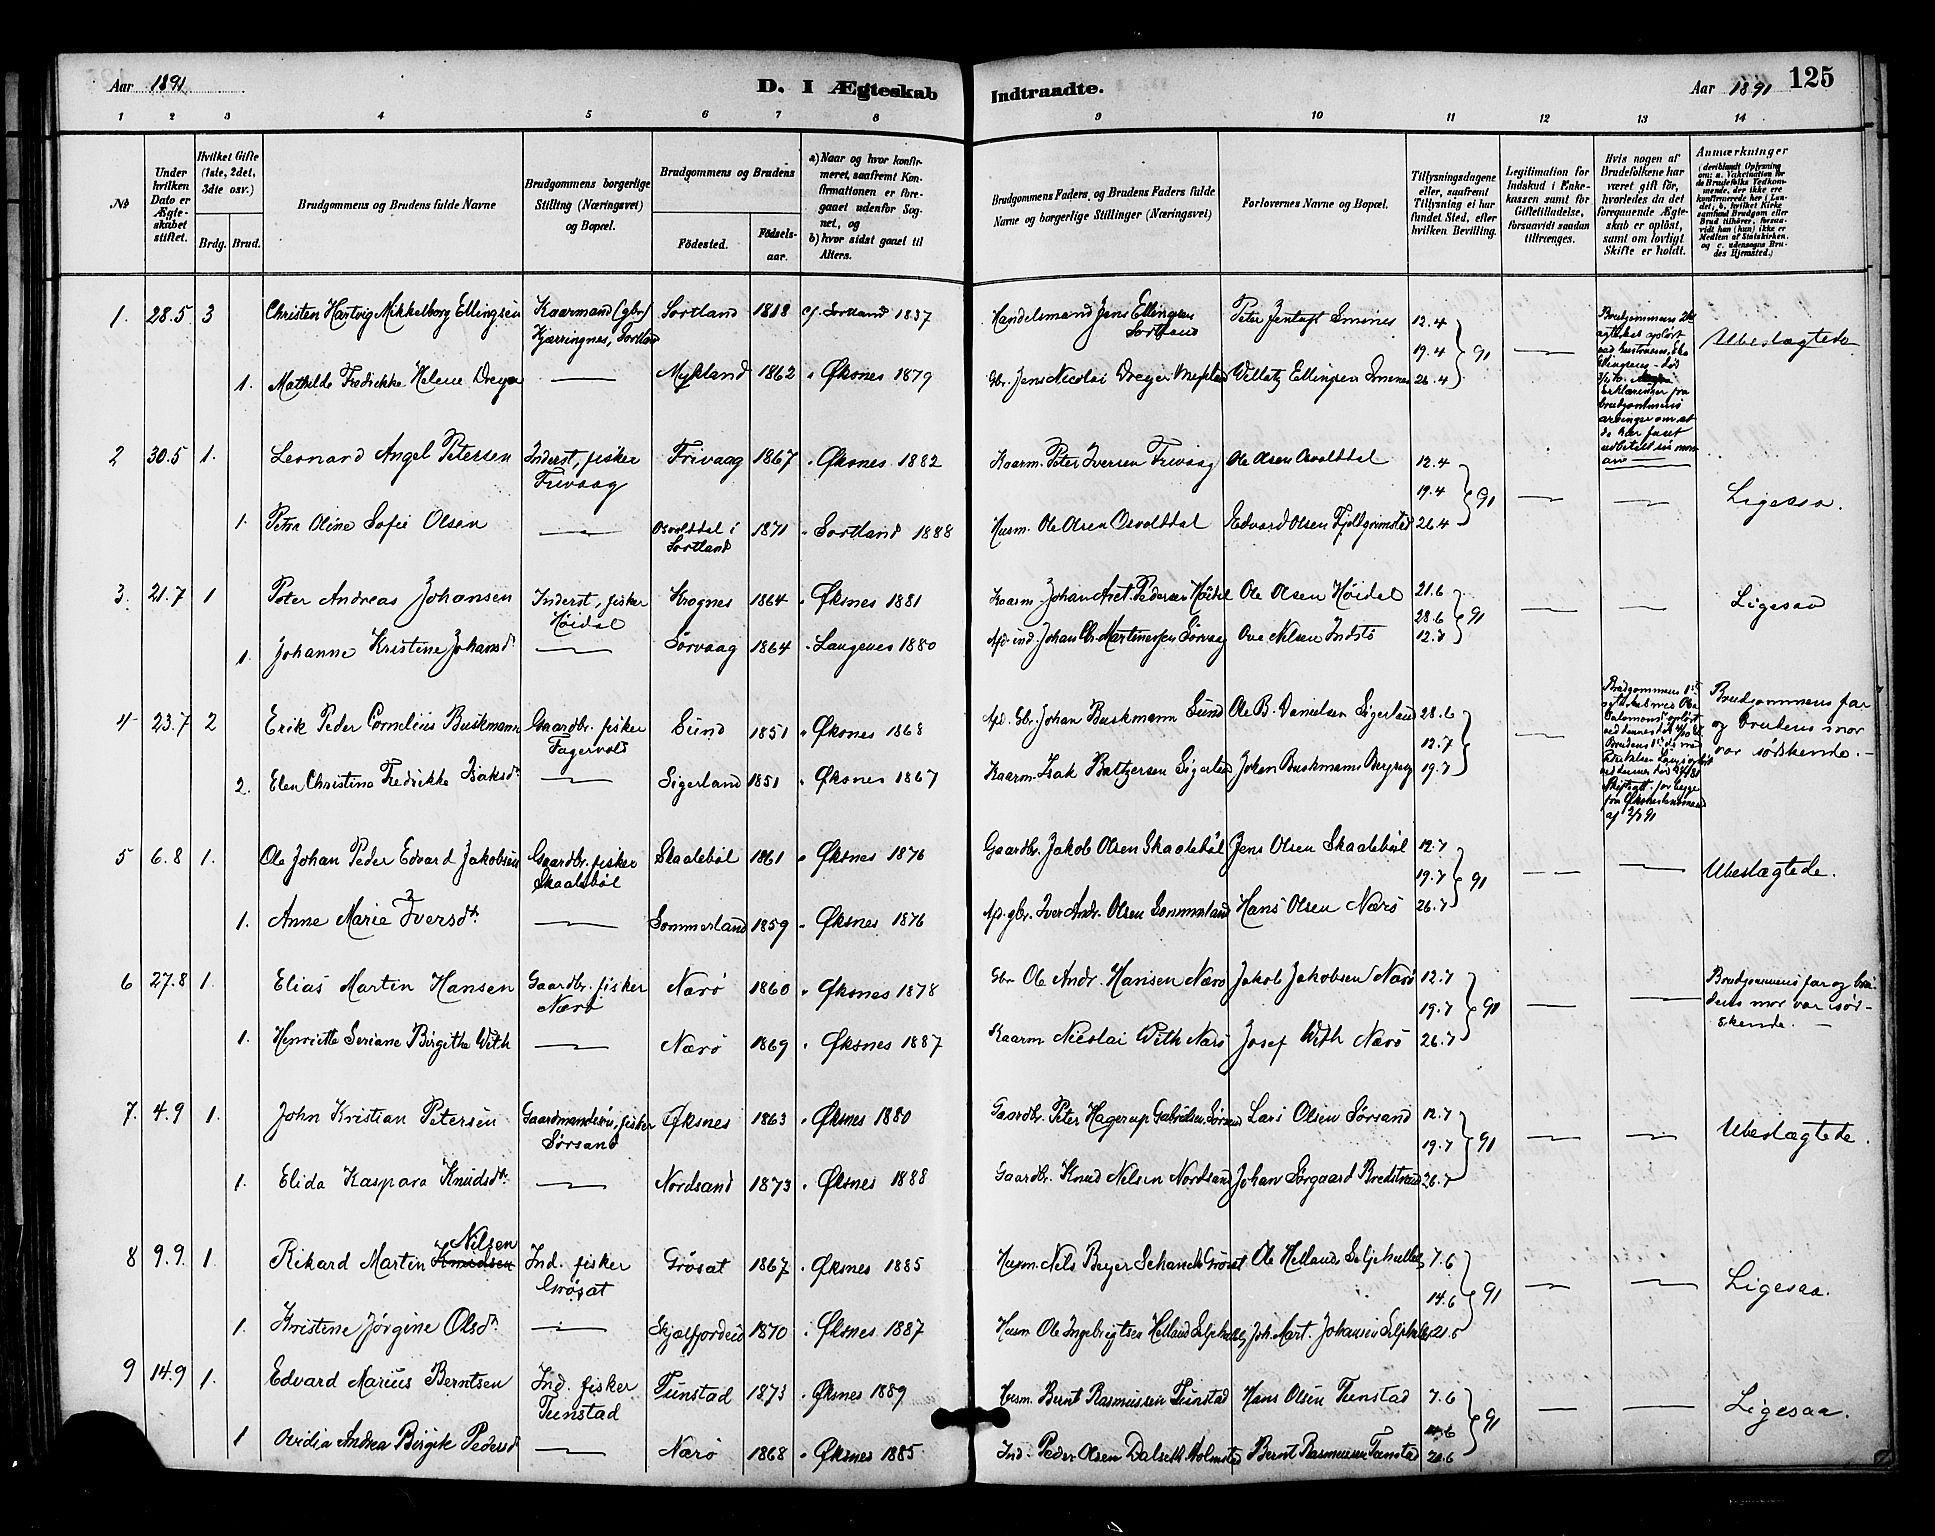 Aar 1891
D. I Ægteskab Indtraadte.
Aar 1891 125
1 2 3 4 5 6 7 8 9 10 11 12 13 14
No
Under hvilken Dato er Ægteskabet stiftet.
Hvilket Gifte (1ste, 2det, 3die osv.)
Brdg. Brud.
Brudgommens og Brudens fulde Navne
Brudgommens borgerlige Stilling (Næringsvei) og Bopæl.
Brudgommens og Brudens
Födested. Födsels-aar.
a) Naar og hvor konfirmeret, saafremt Konfirmationen er foregaaet udenfor Sognet, og
b) hvor sidst gaaet til Alters.
Brudgommens Faders og Brudens Faders fulde Navne og borgerlige Stillinger (Næringsvei)
Forlovernes Navne og Bopæl.
Tillysningsdagene eller, saafremt Tillysning ei har fundet Sted, efter hvilken Bevilling.
Legitimation for Indskud i Enkekassen samt for Giftetilladelse, forsaavidt saadan tiltrænges.
Hvis nogen af Brudefolkene har været gift för, hvorledes da det foregaaende Ægteskab er oplöst, samt om lovligt Skifte er holdt.
Anmærkninger (deriblandt Oplysning om: a. Vakcination for de Brudefolks Vedkommende, der ikke ere konfirmerede her i Landet, b. hvilket Kirkesamfund Brudgom eller Brud tilhörer, forsaavidt han (hun) ikke er Medlem af Statskirken, og c. udensogns Brudes Hjemsted.)
1. 28.5 3 Christen Hartvig Mikkelborg Ellingsen Kaarmand (gbr) Kjærringnes, Sortland Sortland 1818 cf. Sortland 1837 Handelsmand Jens Ellingsen Sortland Peter Jentoft Smines 12.4 19.4 26.4 91 — Ubeslægtede
1. Mathilde Fredrikke Helene Dreyer — Mykland 1862 " Øksnes 1879 Gbr. Jens Nicolai Dreyer Ellingsen Smines
Brudgommens 2det ægteskab opløst ved hustruens
2 30.5 1. Leonard Angel Petersen Inderst, fisker Frivaag Frivaag 1867 " Øksnes 1882 Kaarm. Peter Iversen Frivaag Ole Olsen Osvolddal 12.4 19.4 26.4 91 — — Ligesaa.
1. Petra Oline Sofie Olsen — Osvolddal i Sortland 1871 " Sortland 1888 Husm. Ole Olsen Osvolddal Edvard Olsen
3. 21.7 1 Peter Andreas Johansen Inderst, fisker Höidal Krognes 1864 " Øksnes 1881 Kaarm. Johan Pedersen Höidal Ole Olsen Höidal 21.6 28.6 12.7 91 — — Ligesaa
1. Johanne Kristine Johansd. — Sörvaag 1864 " Langenes 1880 Johan Chr. Martinussen Sörvaag Ove Nilsen Indstö
4 23.7 2 Erik Peder Cornelius Buskmann Gaardbr. fisker Fagervold Sund 1851 " Øksnes 1868 Afd. Gbr. Johan Buskmann Sund Ole B. Danielsen Sigerland 28.6 12.7 19.7 91 — Brudgommens far og brudens mor var södskende. —
2. Elen Christine Fredrikke Isaksd. — Sigerland 1851 " Øksnes 1867 Kaarm. Isak Baltzersen Sigerland Johan Buskmann
5 6.8 1. Ole Johan Peder Edvard Jakobsen Gaardbr. fisker Skaaleböl Skaaleböl 1861 " Øksnes 1876 Gaardbr. Jakob Olsen Skaaleböl Jens Olsen Skaaleböl 12.7 19.7 26.7 91 — — Ubeslægtede.
1. Anne Marie Iversd. — Sommerland 1859 " Øksnes 1876 Afd. gbr. Iver Andr. Olsen Sommerland Hans Olsen Nærö
6 27.8 1. Elias Martin Hansen Gaardbr. fisker Nærö Nærö 1860 " Øksnes 1878 Gbr. Ole Andr. Hansen Nærö Jakob Jakobsen Nærö 12.7 19.7 26.7 91 — — Brudgommens far og brudens mor var södskende. —
1. Henriette Seriane Birgithe With — Nærö 1869 " Øksnes 1887 Kaarm. Nicolai With Nærö Josef With Nærö
7. 4.9 1. John Kristian Petersen Gaardmandssön, fisker Sörsand Øksnes 1863 " Øksnes 1880 Gaardbr. Peter Hagerup Gabrielsen Sörsand Lars Olsen Sörsand 12.7 19.7 26.7 91 — — Ubeslægtede.
1. Elida Kaspara Knudsd. — Nordsand 1873 " Øksnes 1888 Gaardbr. Knud Nilsen Nordsand Johan Sörgaard Bredstrand
8 9.9. 1. Rikard Martin Knudsen Nilsen Ind. fisker Grösat Grösat 1867 " Øksnes 1885 Husm. Nils Beyer Schanch Grösat Ole Helland 7.6 14.6 21.6 91 — — Ligesaa.
1. Kristine Jörgine Olsd. — Skjelfjordeid 1870 " Øksnes 1887 Husm. Ole Ingebrigtsen Helland Joh. Mart. Johansen
9 14.9 1. Edvard Marius Berntsen Ind. fisker Tunstad Tunstad 1873 " Øksnes 1889 Husm. Bernt Rasmussen Tunstad Hans Olsen Tunstad 7.6 14.6 21.6 91 — — Ligesaa.
1 Ovidia Andrea Birgitte Pedersd. — Nærö 1868 " Øksnes 1885 Ind. Peder Olsen Holmstad Bernt Rasmussen Tunstad